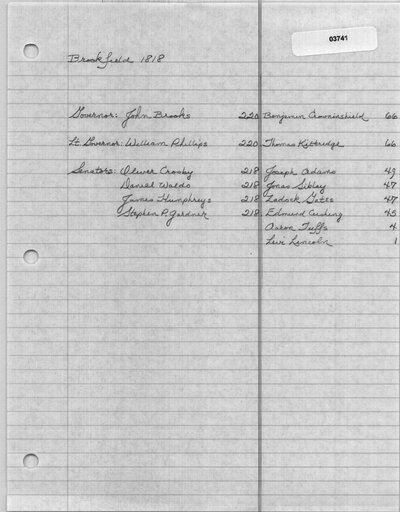 03741
Brookfield 1818
Governor: John Brooks 220 Benjamin Crowninshield 66
Lt. Governor: William Phillips 220 Thomas Kittredge 66
Senators: Oliver Crosby 218 Joseph Adams 49
Daniel Waldo 218 Jonas Sibley 47
James Humphreys 218 Zadock Gates 47
Stephen P. Gardner 218 Edmund Cushing 45
Aaron Tuffs 4
Levi Lincoln 1